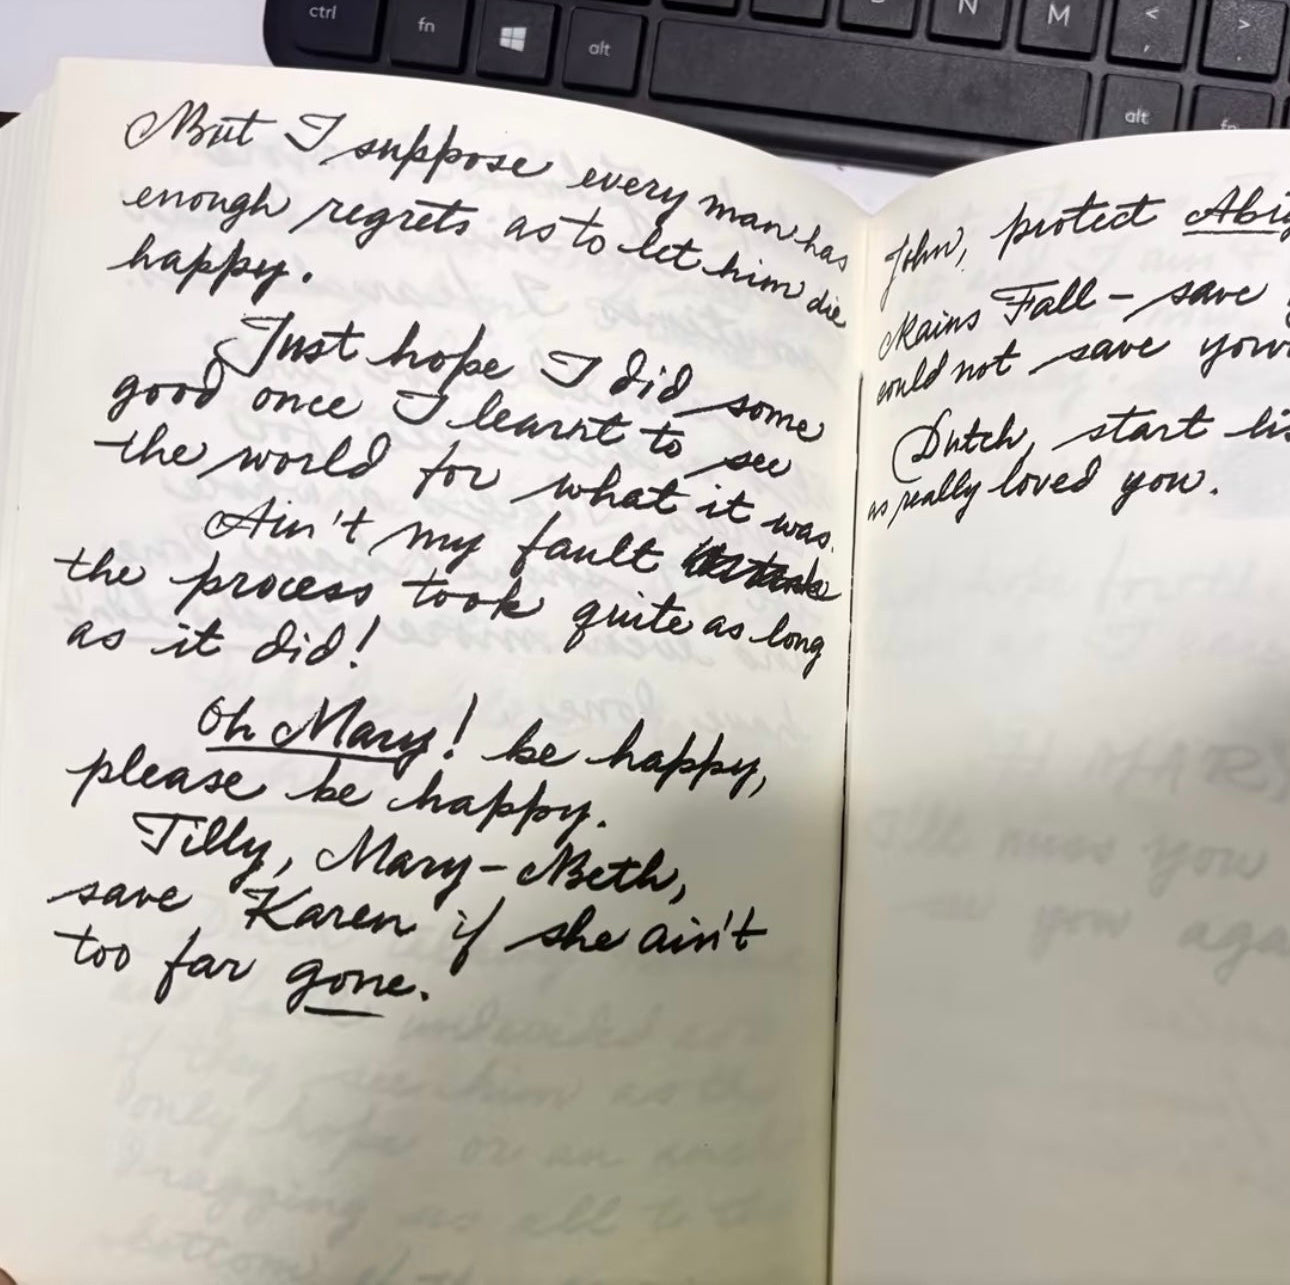 ctrl
fn
alt
N
M
<
,
>
.
alt
fn
But I suppose every man has
enough regrets as to let him die
happy.
Just hope I did some
good once I learnt to see
the world for what it was.
Ain't my fault
the process took quite as long
as it did!
Oh Mary! be happy,
please be happy.
Tilly, Mary-Beth,
save Karen if she ain't
too far gone.
John, protect Abig
Rains Fall - save
could not save your
Dutch, start lis
us really loved you.